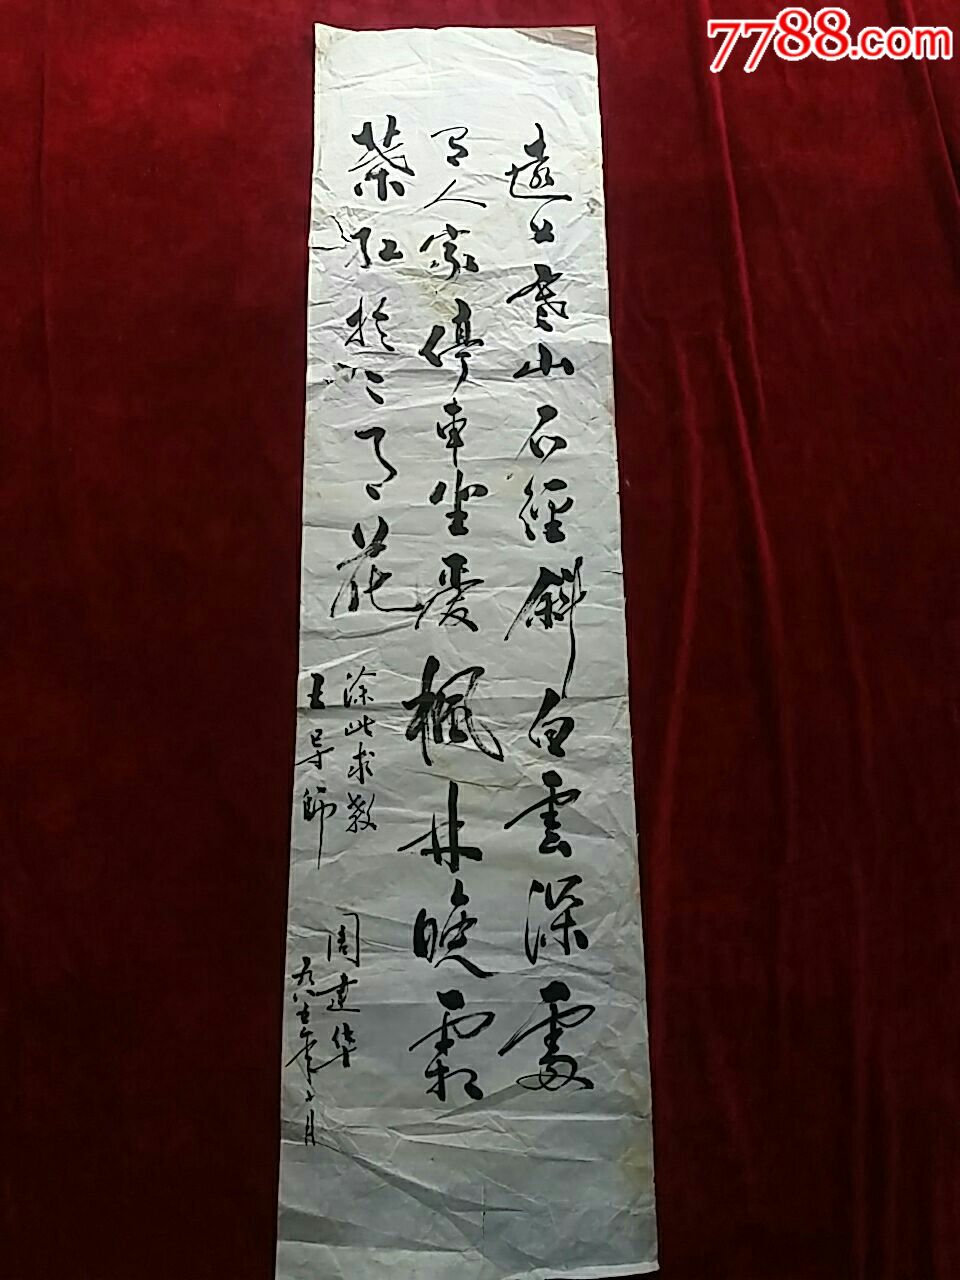 遠上寒山石徑斜白雲深處
有人家停車坐愛楓林晚霜
葉紅於二月花
涂此求教
王导師
周建华
九八五年二月
7788.com